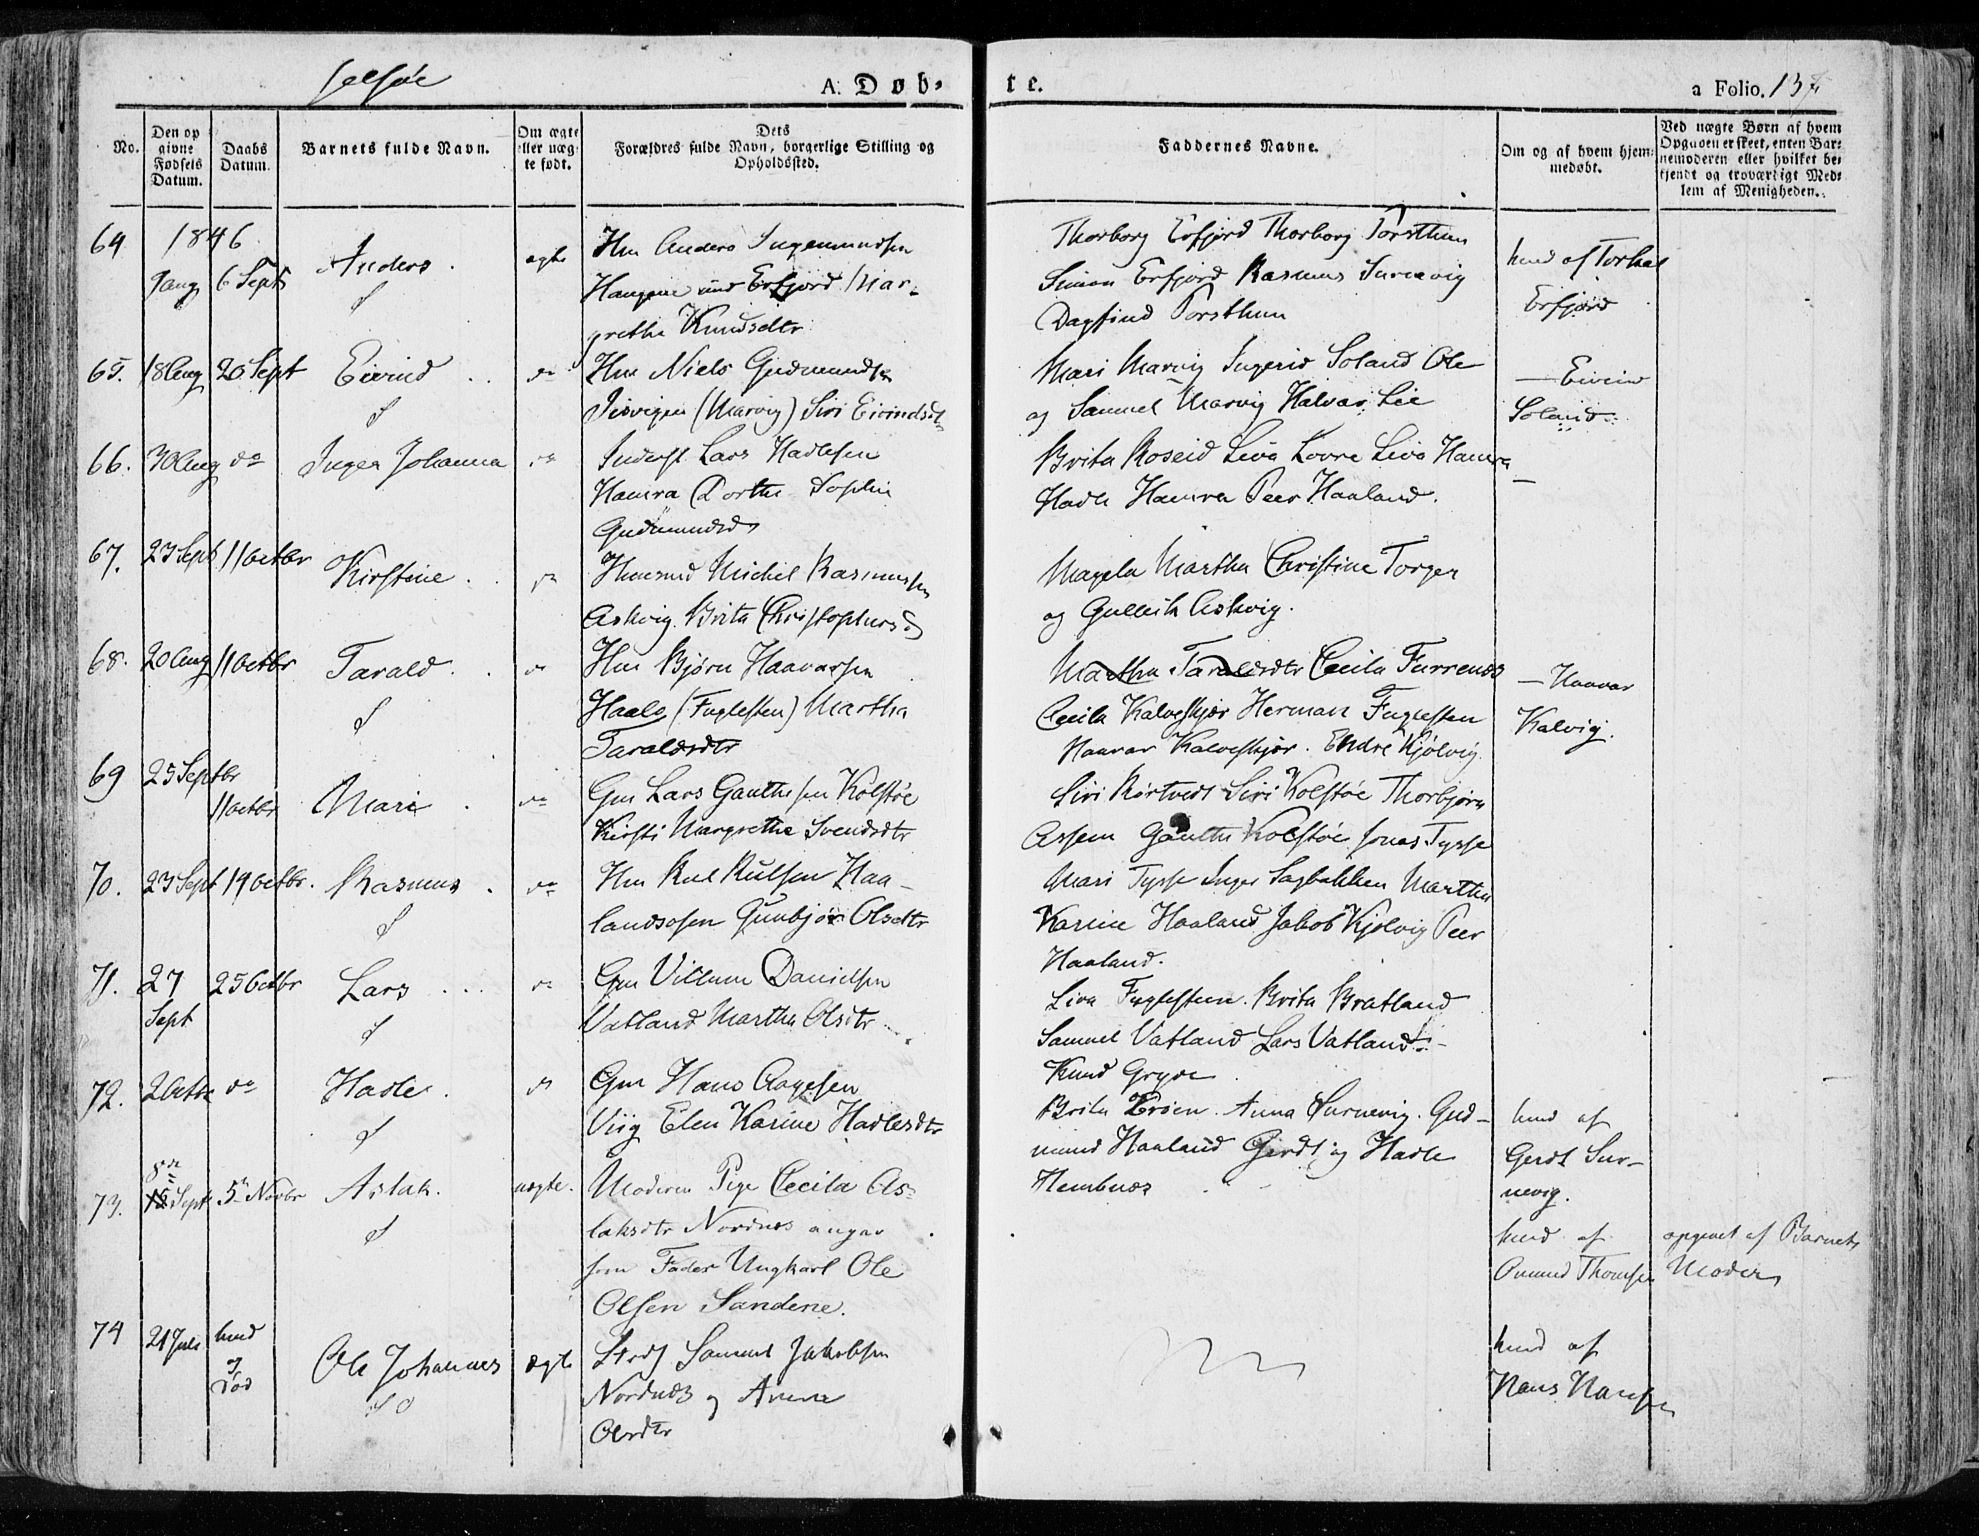 Jelsøe
A. Døb-
te.
a Folio. 137
No.
Den op
givne
Fødsels
Datum.
Daabs
Datum.
Barnets fulde Navn.
Om ægte
eller uæg-
te født.
Dets
Forældres fulde Navn, borgerlige Stilling og
Opholdssted.
Faddernes Navne.
Om og af hvem hjem-
medøbt.
Ved uægte Børn af hvem
Opgaven er skeet, enten Bar-
nemoderen eller hvilket be-
kjendt og troværdigt Med-
lem af Menigheden.
1846
64 Aug 6 Sept Anders. ægte
Hm Anders Ingemundsen
Haugene Erfjord Mar-
grethe Knudsdtr
Thorborg Erfjord Thorborg Porsthun
Simon Erfjord Rasmus Surnevig
Dagfind Porsthun
hmd af Torkel
Erfjord
65. 18 Aug 20 Sept Eivind do
Hm Niels Gudmundsen
(Marvig) Siri Eivindsdtr
Mari Marvig Ingerid Soland Ole
og Samuel Marvig Halvar Lie
— Eivind
Soland
66. 30 Aug do Inger Johanna do
Inderst Lars Hadlesen
Hamra Dorthe Sophie
Gudmundsd
Brita Roseid Liva Lovre Liva Hamra
Hadle Hamra Peer Haaland.
—
67. 23 Sept 11 Octbr Kirstine. do
Huusmd Michel Rasmussen
Askvig Brita Christophersd
Magela Martha Christine Torger
og Gullich Askvig.
68. 20 Aug 11 Octbr Tarald. do
Hm Bjørn Haavarsen
Haale (Fuglesten) Martha
Taraldsdtr
Martha Taraldsdtr Cecila Furrenæs
Cecila Kalveskjær Herman Fuglesten
Haavar Kalveskjær. Endre Kjølvig
— Haavar
Kalvig.
69 25 Septbr 11 Octbr Mari do
Gm Lars Gauthesen Kolstøe
Kirsti Margrethe Svendsdtr
Siri Rørtvedt Siri Kolstøe Thorbjørn
Assem Gauthe Kolstøe Jonas Tysse
70. 23 Sept 14 Octbr. Rasmus. do
Hm Rul Rulsen Haa-
landsosen Gunbjør Olsdtr
Mari Tysse Inger Sagbakken Martha
Karine Haaland Jakob Kjølvig Peer
Haaland.
71. 27
Sept
25 Octbr Lars do
Gm Villum Danielsen
Vatland Martha Olsdtr
Liva Fuglesteen. Brita Bratland
Samuel Vatland Lars Vatland
Knud
72. 2 Octbr do Hadle. do
Gm Hans Aagesen
Viig Elen Karine Hadlesdtr
Brita Erøen. Anna Surnevig. Gud-
mund Haaland Gerdt og Hadle
Hembnæs
hmd af
Gerdt Sur-
nevig.
73. 8de Sept 5te Novbr Aslak. uægte.
Moderen Pige Cecila As-
laksdtr Nordnæs angav
som Fader Ungkarl Ole
Olsen Sandene.
hmd af
Omund Thomsen
opgivet af Barnets
Moder
74 21 Juli hmd
og
død
Ole Johannes ægte
Samuel Jakobsen
Nordnæs og
Olsdtr
hmd af
Hans Hansen